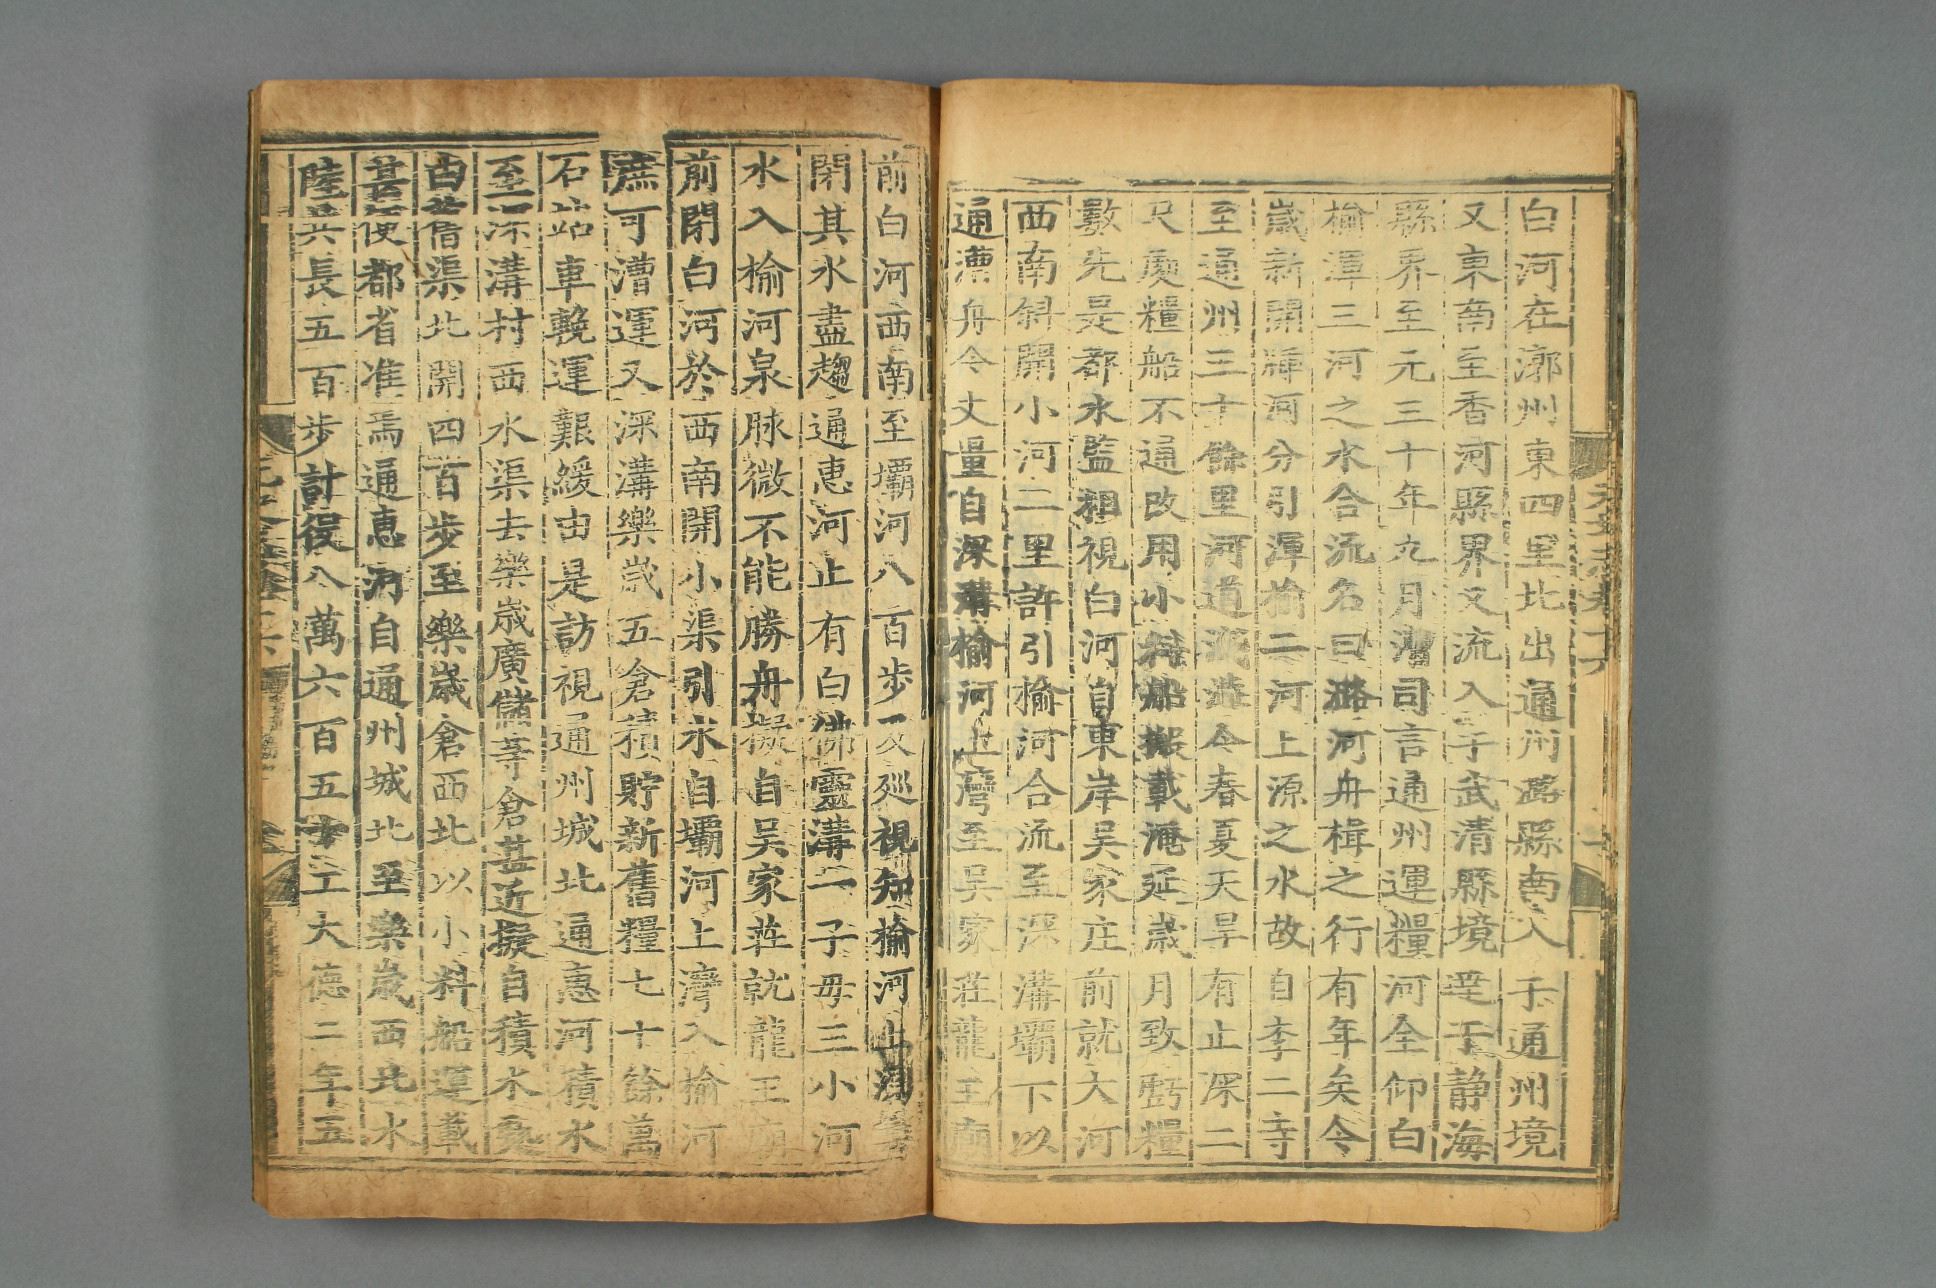 白河在漷州東四里北出通州潞縣南入于通州境
又東南至香河縣界又流入于武清縣境達于静海
縣界至元三十年九月漕司言通州運糧河全仰白
榆渾三河之水合流名曰潞河舟楫之行有年矣今
歲新開渾河分引渾榆二河上源之水故自李二寺
至通州三十餘里河道淺澁今春夏天旱有止深二
尺處糧船不通改用小料船搬載淹延歲月致虧糧
數先是都水監相視白河自東岸吳家庄前就大河
西南斜開小河二里許引榆河合流至深溝壩下以
通漕舟今丈量自深溝榆河上灣至吳家莊龍王廟
前白河西南至壩河八百步及廵視知榆河上源築
閉其水盡趨通惠河止有白佛靈溝一子母三小河
水入榆河泉脉微不能勝舟擬自吳家莊就龍王廟
前閉白河於西南開小渠引水自壩河上灣入榆河
庶可漕運又深溝樂歲五倉積貯新舊糧七十餘萬
石站車輓運艱緩由是訪視通州城北通惠河積水
至深溝村西水渠去樂歲廣儲等倉甚近擬自積水處
由舊渠北開四百步至樂歲倉西北以小料船運載
甚便都省准焉通惠河自通州城北至樂歲西北水
陸共長五百步計役八萬六百五十工大德二年五